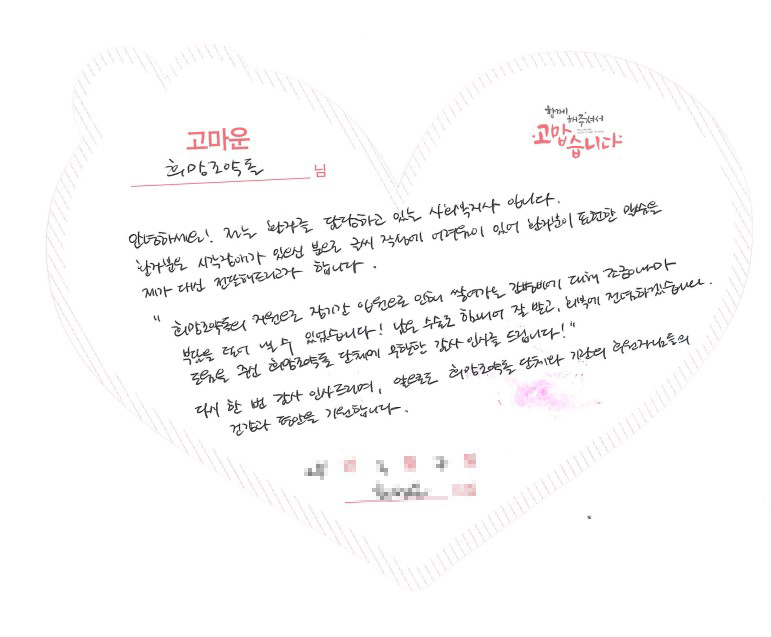 고마운
희망조약돌 님
함께
해주셔서
고맙
습니다
안녕하세요! 저는 환자를 담당하고 있는 사회복지사 입니다.
환자분은 시각장애가 있으신 분으로 글씨 작성에 어려움이 있어 환자분이 표현한 말씀을
제가 대신 전달해드리고자 합니다.
" 희망조약돌의 지원으로 장기간 입원으로 인해 쌓여가는 간병비에 대해 조금이나마
부담을 덜어 낼 수 있었습니다! 남은 수술도 힘내어 잘 받고, 회복에 전념하겠습니다.
도움을 주신 희망조약돌 단체에 무한한 감사 인사를 드립니다! "
다시 한 번 감사 인사드리며, 앞으로도 희망조약돌 단체와 기관의 후원자님들의
건강과 평안을 기원합니다.